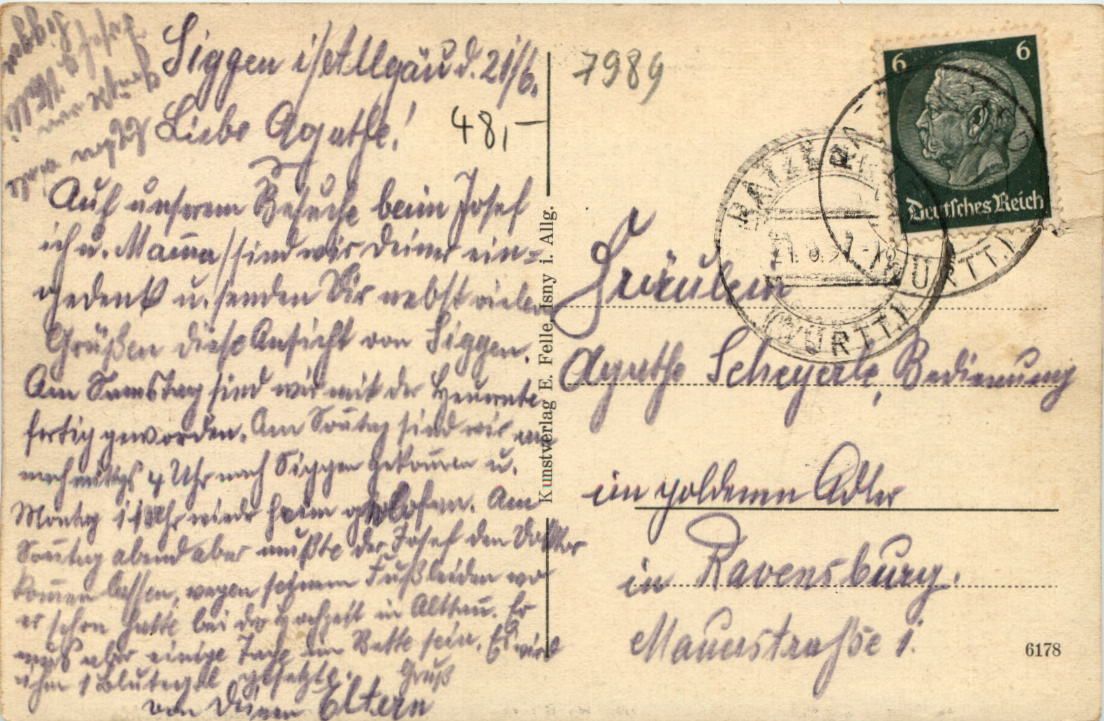 Siggen i/Allgäu d. 21/6.
Liebe Agathe!
Auf unserem Besuche beim Josef
ich u. Mama sind wir deiner ein-
gedenk u. senden Dir nebst vielen
Grüßen diese Ansicht von Siggen.
Am Samstag sind wir mit der Heuernte
fertig geworden. Am Sontag sind wir
nachmittags 4 Uhr nach Siggen gekomen u.
Montag 11 Uhr wieder heim gelofen. Am
Sontag abend aber mußte der Josef den Doktor
komen lassen, wegen seinem Fußleiden wo
er schon hatte bei der Hochzeit in Alttan. Er
muß aber einige Tage im Bette sein. Es wird
ihm 1 Blutegel gesetzt. Gruß
von Deinen Eltern
48,-
7989
Kunstverlag E. Felle, Isny i. Allg.
6 6
Deutsches Reich
RATZENRIED
(WÜRTT.)
Fräulein
Agathe Scheyerle, Bedienung
im goldenen Adler
in Ravensburg.
Mauerstraße 1.
6178